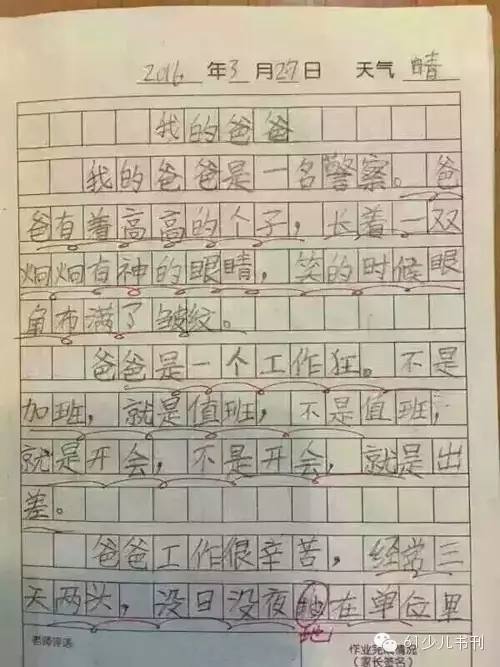 2016 年 3 月 27 日 天气 晴
我的爸爸
我的爸爸是一名警察。爸
爸有着高高的个子，长着一双
炯炯有神的眼睛，笑的时候眼
角布满了皱纹。
爸爸是一个工作狂。不是
加班，就是值班，不是值班，
就是开会，不是开会，就是出
差。
爸爸工作很辛苦，经常三
天两头，没日没夜的在单位里
地
老师评语
作业完成情况
（家长签名）
61少儿书刊